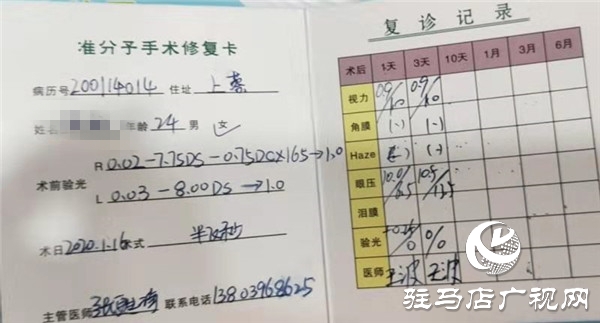 准分子手术修复卡
病历号 200114014 住址 上蔡
年龄 24 男 女
R 0.02 -7.75DS -0.75DC×165→1.0
术前验光
L 0.03 -8.00DS →1.0
术日 2020.1.16 术式 半飞秒
主管医师 联系电话 13803968625
复诊记录
术后 1天 3天 10天 1月 3月 6月
视力 0.9/1.0 0.9/1.0
角膜 (-) (-)
Haze (-) (-)
眼压
泪膜
验光 +0.25/0 0/0
医师 王波 王波
驻马店广视网